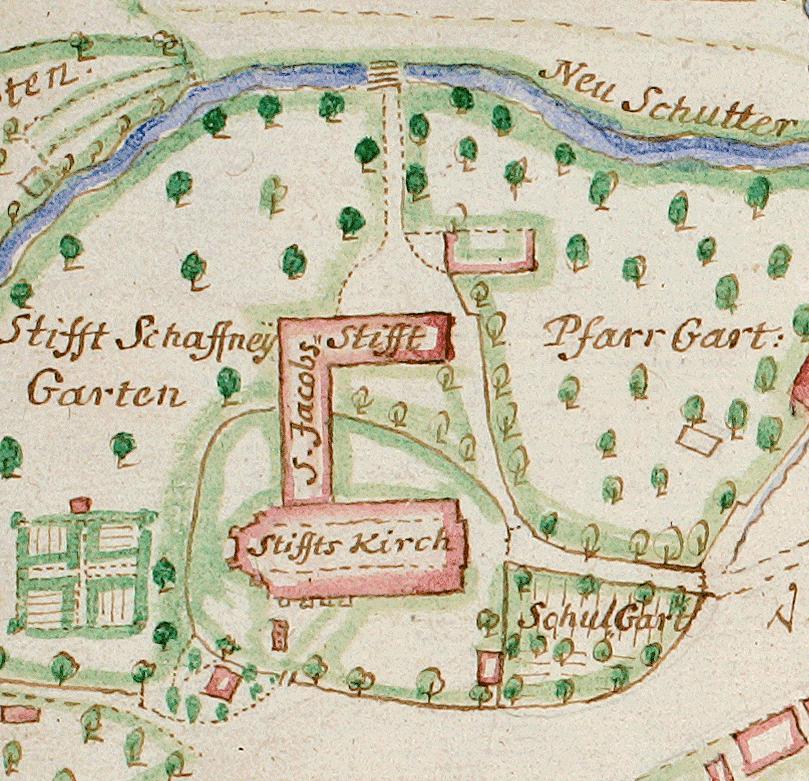 ten.
Neu Schutter
Stifft Schaffneÿ
Garten
Stifft
S. Jacobs
Pfarr Gart:
Stiffts Kirch
Schul Gart